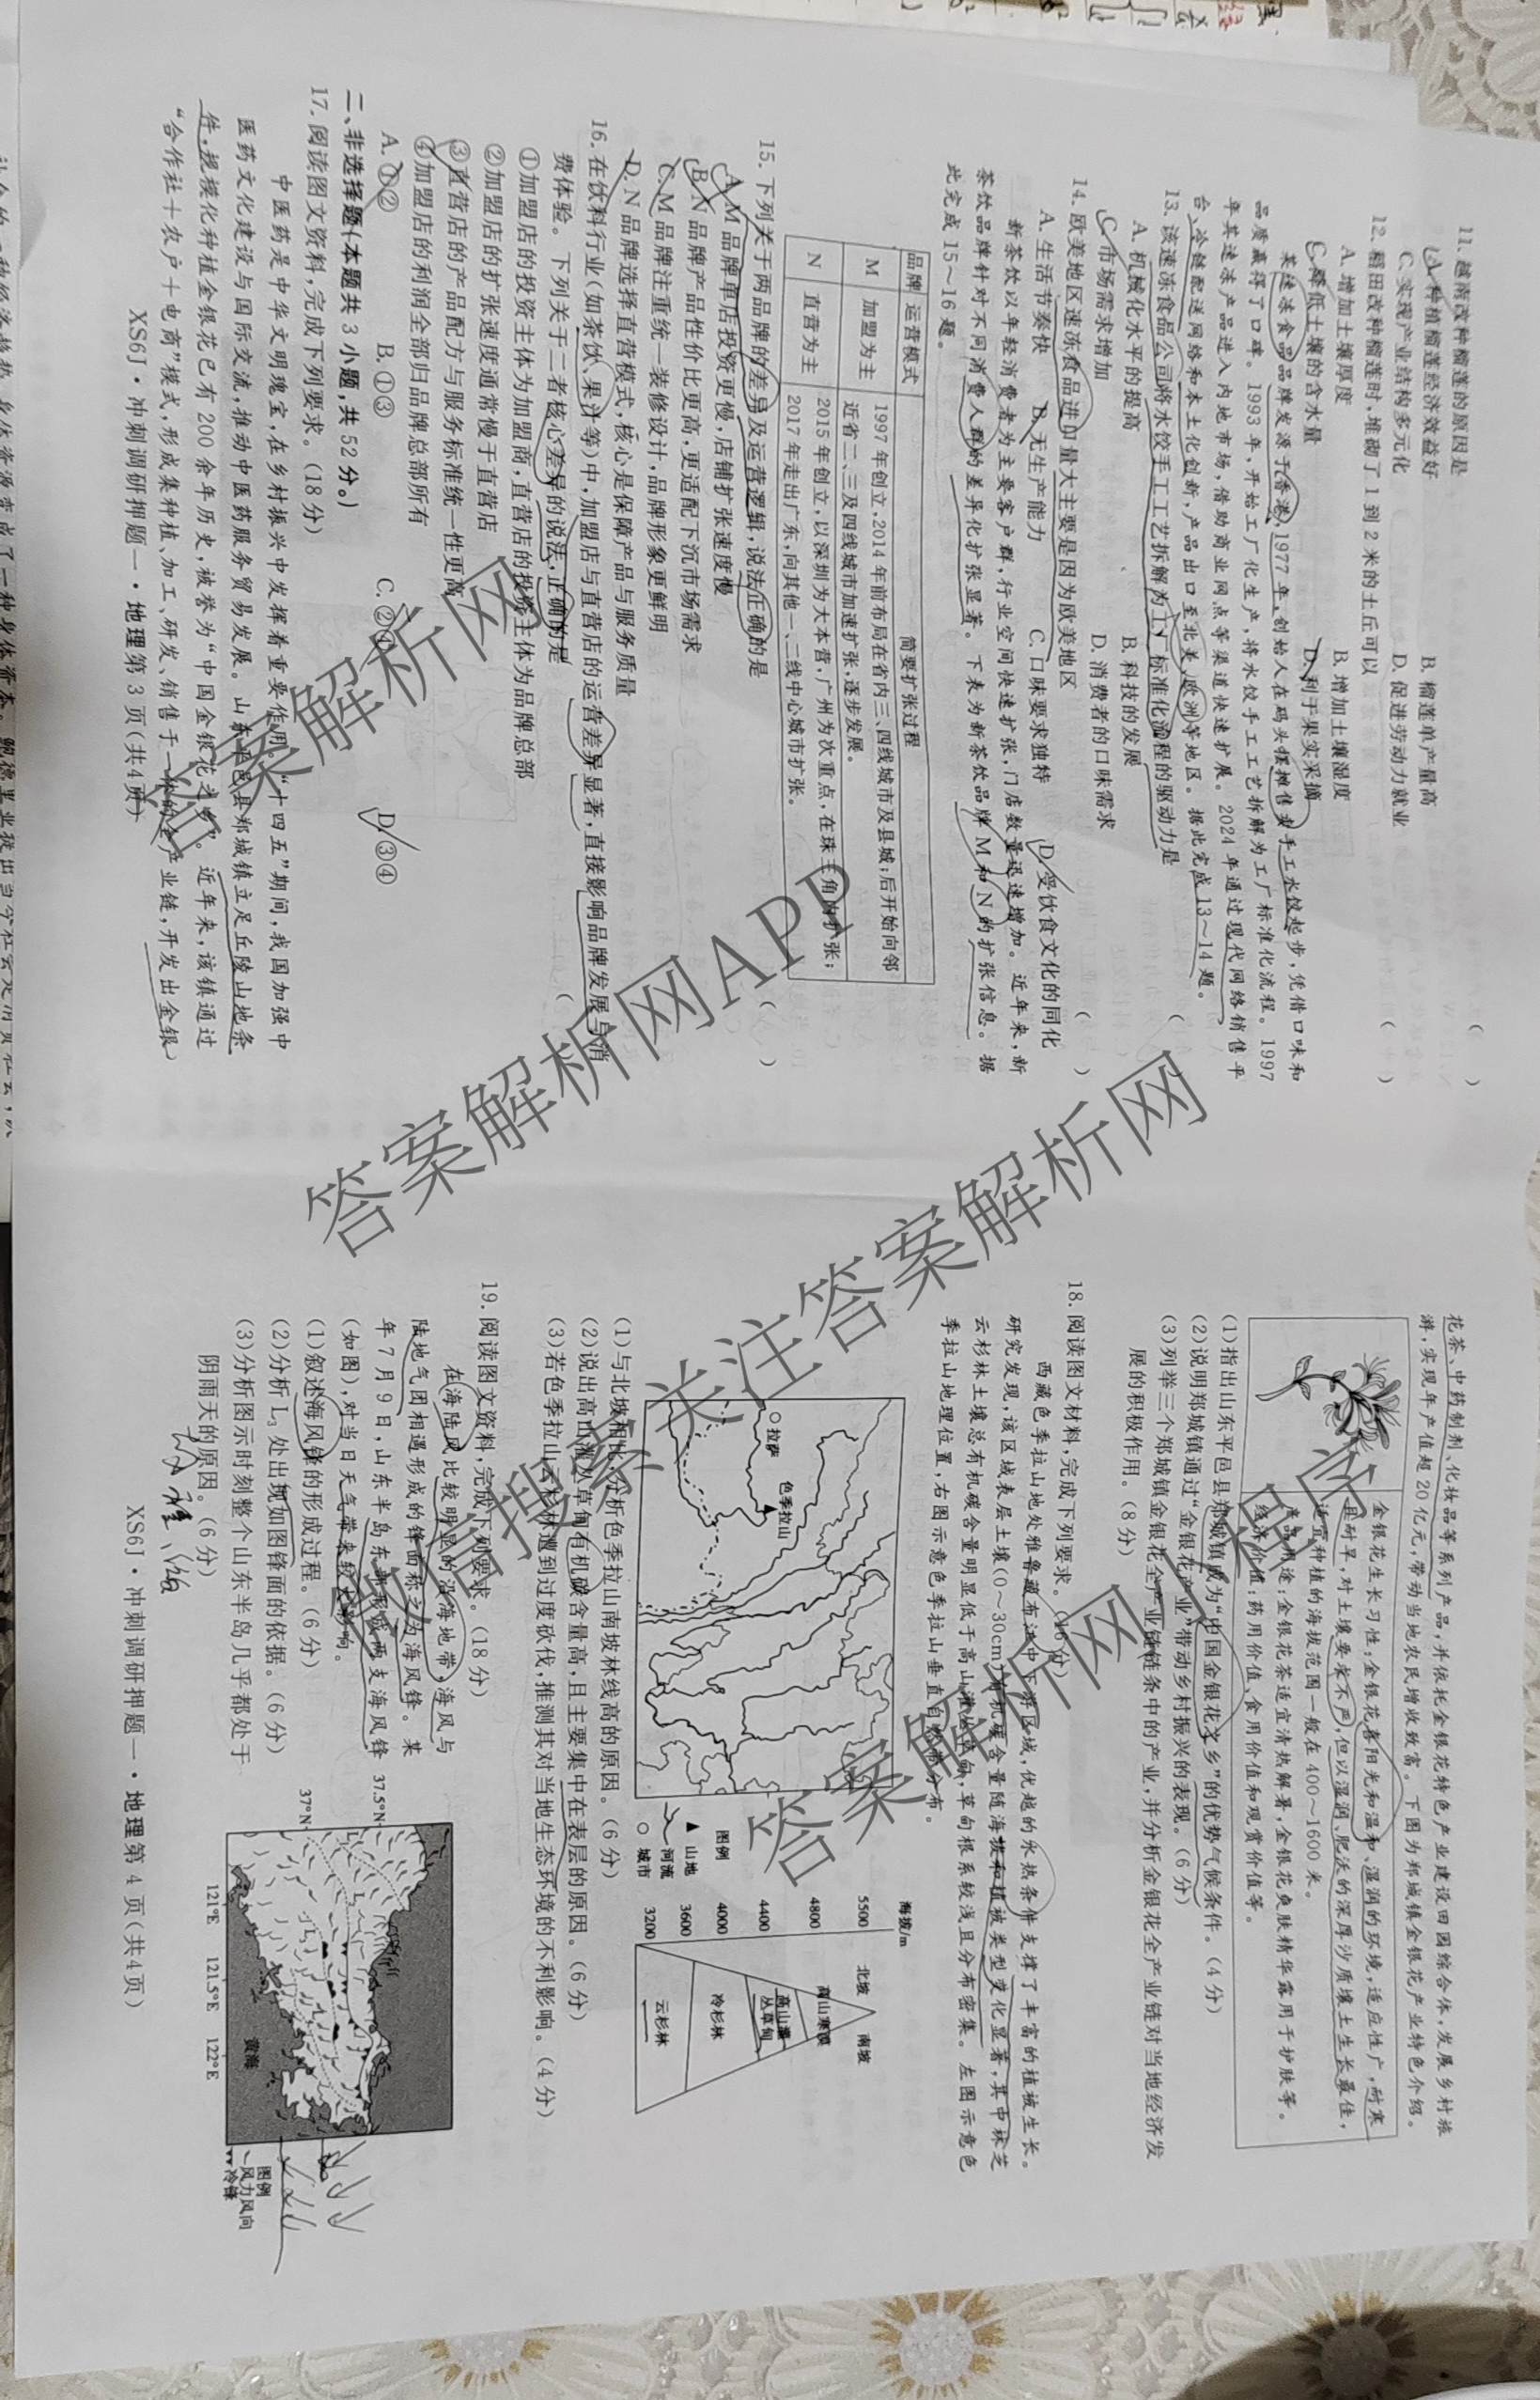 11. 越南改种榴莲的原因是 ( )
A. 种植榴莲经济效益好 B. 榴莲单产量高
C. 实现产业结构多元化 D. 促进劳动力就业
12. 稻田改种榴莲时,堆砌了1到2米的土丘可以 ( )
A. 增加土壤厚度 B. 增加土壤湿度
C. 降低土壤的含水量 D. 利于果实采摘
某速冻食品品牌发源于香港,1977年,创始人在码头摆摊售卖手工水饺起步,凭借口味和
品质赢得了口碑。1993年,开始工厂化生产,将水饺手工工艺拆解为工厂标准化流程。1997
年其速冻产品进入内地市场,借助商业网点等渠道快速扩展。2024年通过现代网络销售平
台、冷链配送网络和本土化创新,产品出口至北美、欧洲等地区。据此完成13~14题。
13. 该速冻食品公司将水饺手工工艺拆解为工厂标准化流程的驱动力是 ( )
A. 机械化水平的提高 B. 科技的发展
C. 市场需求增加 D. 消费者的口味需求
14. 欧美地区速冻食品进口量大主要是因为欧美地区 ( )
A. 生活节奏快 B. 无生产能力 C. 口味要求独特 D. 受饮食文化的同化
新茶饮以年轻消费者为主要客户群,行业空间快速扩张,门店数量迅速增加。近年来,新
茶饮品牌针对不同消费人群的差异化扩张显著。下表为新茶饮品牌M和N的扩张信息。据
此完成15~16题。
品牌 运营模式 简要扩张过程
M 加盟为主 1997年创立,2014年前布局在省内三、四线城市及县城;后开始向邻
近省二、三及四线城市加速扩张,逐步发展。
N 直营为主 2015年创立,以深圳为大本营,广州为次重点,在珠三角内扩张;
2017年走出广东,向其他一、二线中心城市扩张。
15. 下列关于两品牌的差异及运营逻辑,说法正确的是 ( )
A. M品牌单店投资更慢,店铺扩张速度慢
B. N品牌产品性价比更高,更适配下沉市场需求
C. M品牌注重统一装修设计,品牌形象更鲜明
D. N品牌选择直营模式,核心是保障产品与服务质量
16. 在饮料行业(如茶饮、果汁等)中,加盟店与直营店的运营差异显著,直接影响品牌发展与消
费体验。下列关于二者核心差异的说法,正确的是 ( )
①加盟店的投资主体为加盟商,直营店的投资主体为品牌总部
②加盟店的扩张速度通常慢于直营店
③直营店的产品配方与服务标准统一性更高
④加盟店的利润全部归品牌总部所有
A. ①② B. ①③ C. ②④ D. ③④
二、非选择题(本题共3小题,共52分。)
17. 阅读图文资料,完成下列要求。(18分)
中医药是中华文明瑰宝,在乡村振兴中发挥着重要作用。“十四五”期间,我国加强中
医药文化建设与国际交流,推动中医药服务贸易发展。山东平邑县郑城镇立足丘陵山地条
件,规模化种植金银花已有200余年历史,被誉为“中国金银花之乡”。近年来,该镇通过
“合作社+农户+电商”模式,形成集种植、加工、研发、销售于一体的全产业链,开发出金银
XS6J·冲刺调研押题一·地理第3页(共4页)
花茶、中药制剂、化妆品等系列产品,并依托金银花特色产业建设田园综合体,发展乡村旅
游,实现年产值超20亿元,带动当地农民增收致富。下图为郑城镇金银花产业特色介绍。
金银花生长习性:金银花喜阳光和温和、湿润的环境,适应性广,耐寒
且耐旱,对土壤要求不严,但以湿润、肥沃的深厚沙质壤土生长最佳,
适宜种植的海拔范围一般在400~1600米。
产品用途:金银花茶适宜清热解暑,金银花爽肤精华露用于护肤等。
经济价值:药用价值、食用价值和观赏价值等。
(1)指出山东平邑县郑城镇成为“中国金银花之乡”的优势气候条件。(4分)
(2)说明郑城镇通过“金银花产业”带动乡村振兴的表现。(6分)
(3)列举三个郑城镇金银花全产业链链条中的产业,并分析金银花全产业链对当地经济发
展的积极作用。(8分)
18. 阅读图文材料,完成下列要求。(16分)
西藏色季拉山地处雅鲁藏布江中下游区域,优越的水热条件支撑了丰富的植被生长。
研究发现,该区域表层土壤(0~30cm)有机碳含量随海拔和植被类型变化显著,其中林芝
云杉林土壤总有机碳含量明显低于高山灌丛草甸,草甸根系较浅且分布密集。左图示意色
季拉山地理位置,右图示意色季拉山垂直自然带分布。
拉萨
色季拉山
图例
▲ 山地
河流
○ 城市
海拔/m
5500
4800
4400
4000
3600
3200
北坡 南坡
高山寒漠
高山灌
丛草甸
冷杉林
云杉林
(1)与北坡相比,分析色季拉山南坡林线高的原因。(6分)
(2)说出高山灌丛草甸有机碳含量高,且主要集中在表层的原因。(6分)
(3)若色季拉山云杉林遭到过度砍伐,推测其对当地生态环境的不利影响。(4分)
19. 阅读图文资料,完成下列要求。(18分)
在海陆风比较明显的沿海地带,海风与
陆地气团相遇形成的锋面称之为海风锋。某
年7月9日,山东半岛东部形成两支海风锋
(如图),对当日天气带来较大影响。
(1)叙述海风锋的形成过程。(6分)
(2)分析L₁处出现如图锋面的依据。(6分)
(3)分析图示时刻整个山东半岛几乎都处于
阴雨天的原因。(6分)
37.5°N
37°N
121°E 121.5°E 122°E
黄海
图例
风力风向
冷锋
XS6J·冲刺调研押题一·地理第4页(共4页)
答案解析网APP
关注答案解析网
答案解析网